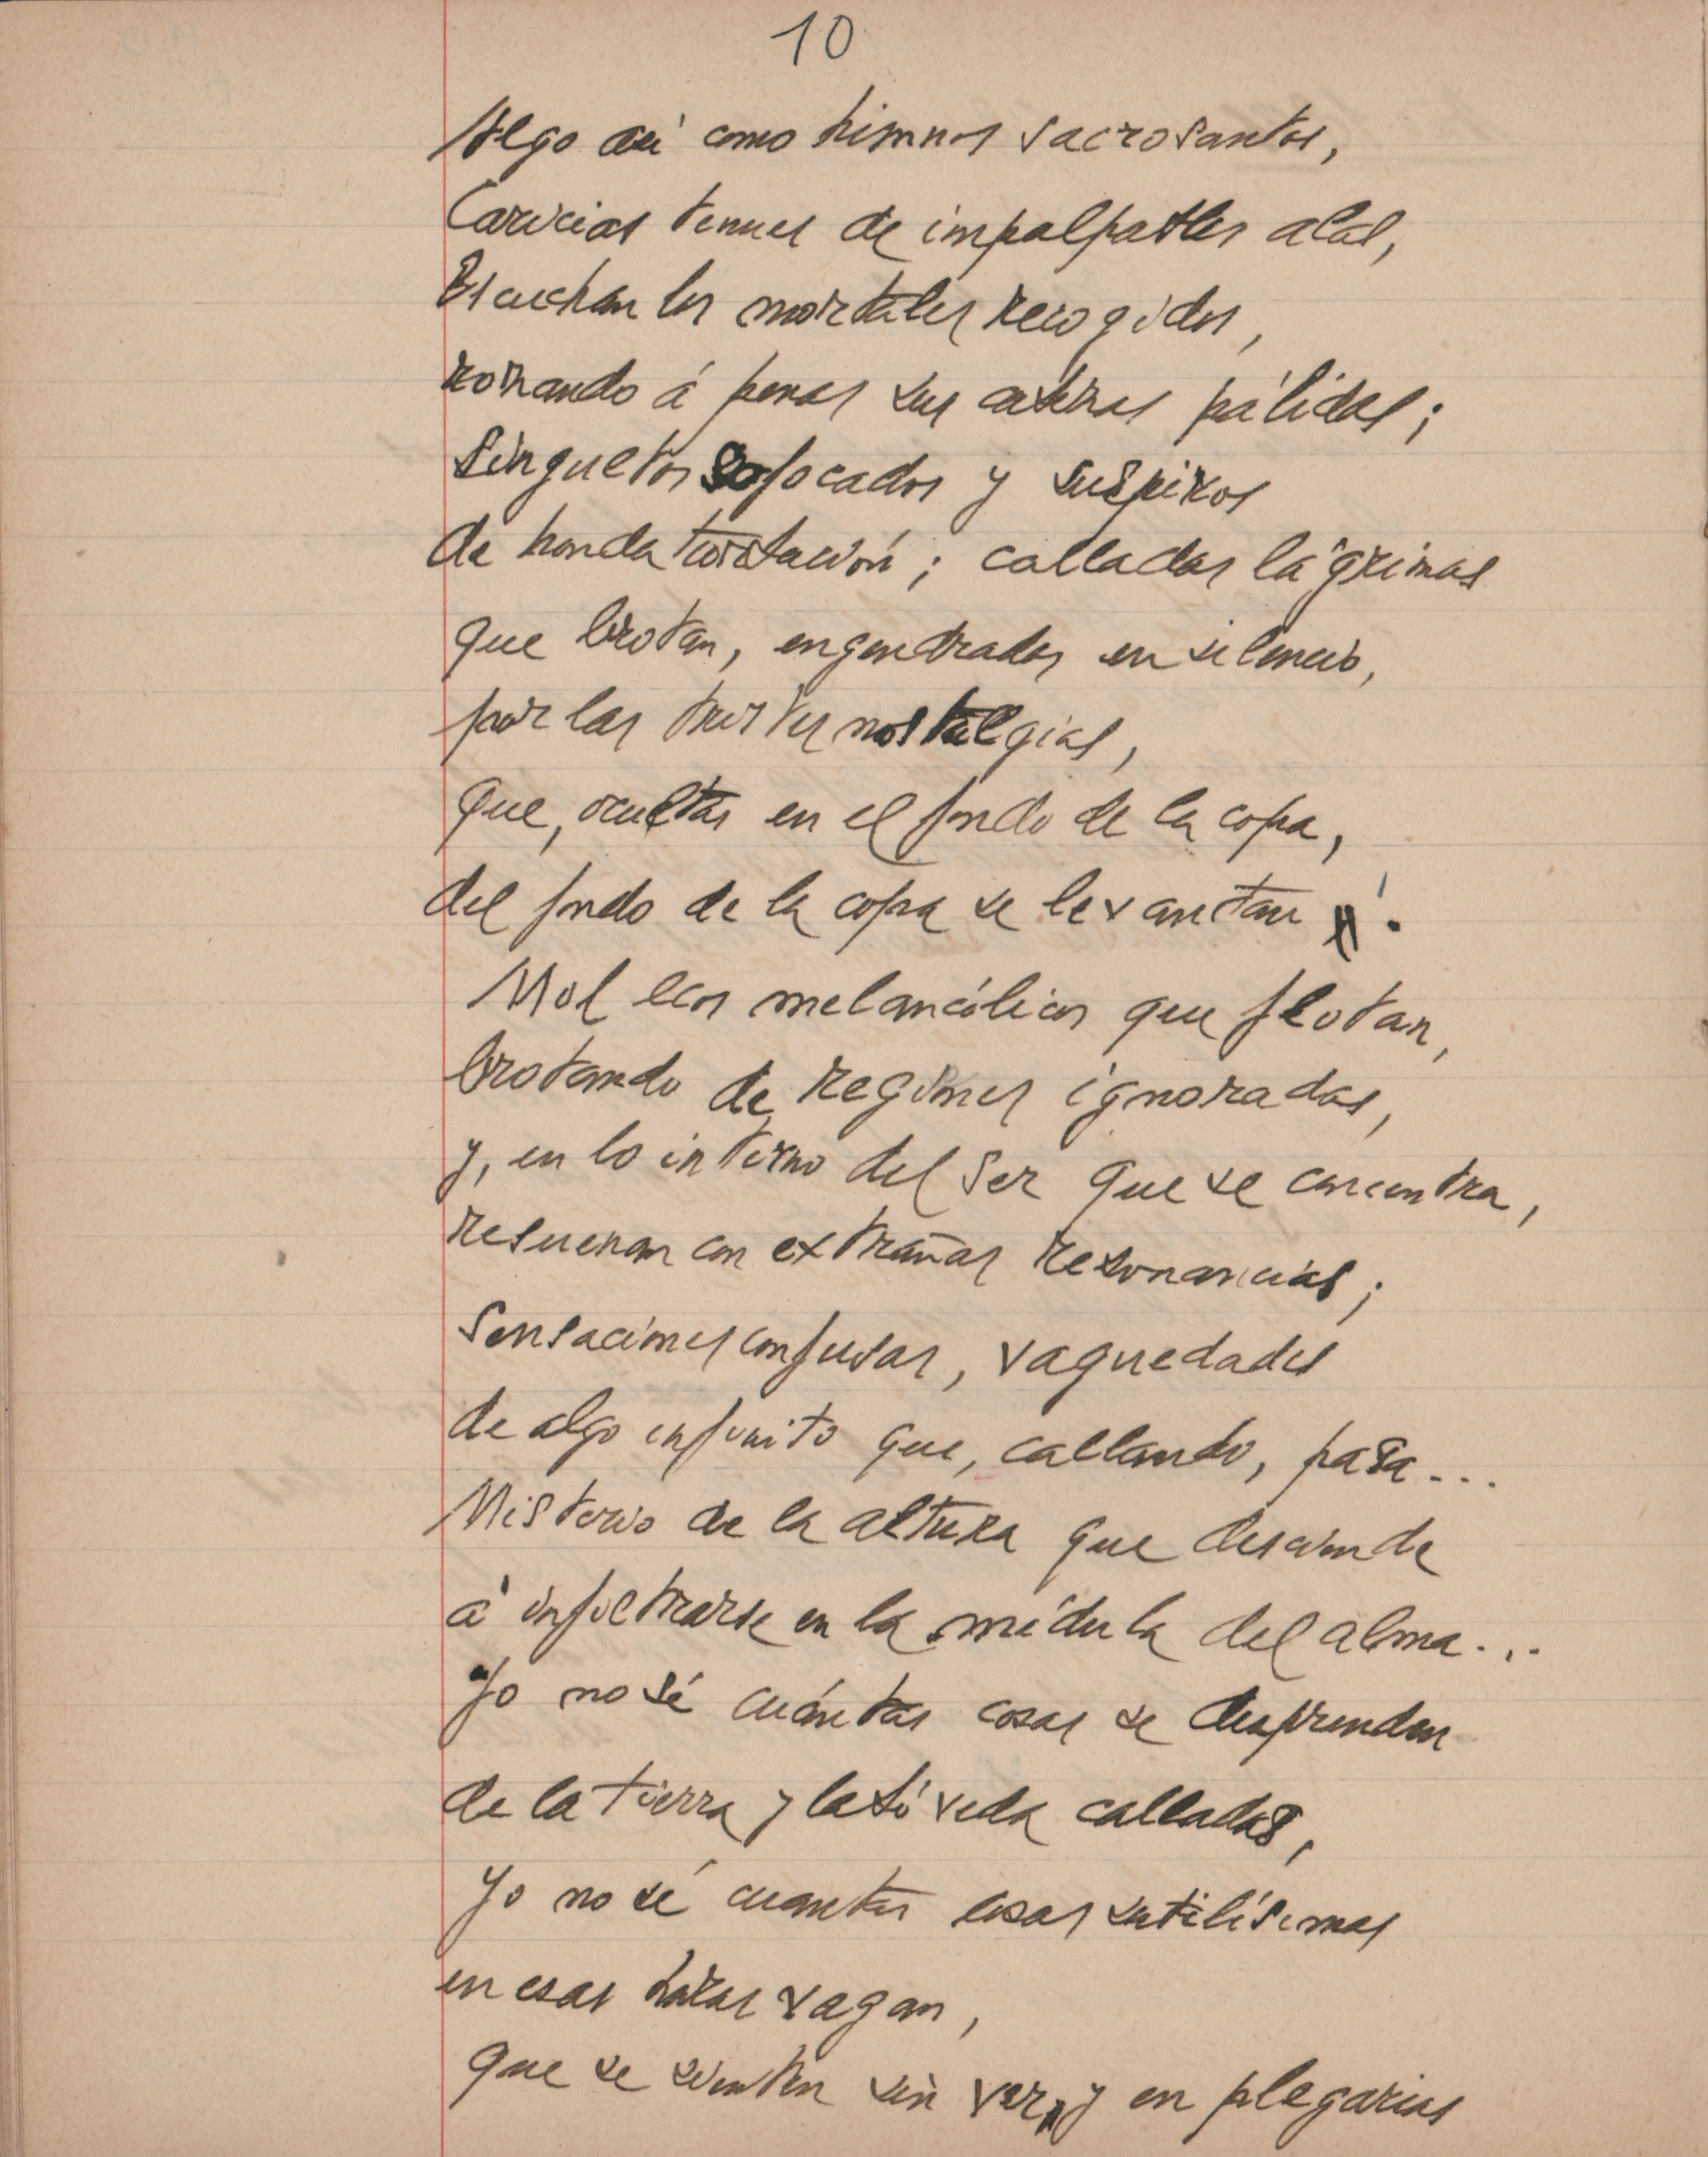 10
Algo así como himnos sacrosantos,
Caricias tenues de impalpables alas,
Escuchan los mortales recogidos,
rozando á penas sus cabezas pálidas;
Singultos sofocados y suspiros
de honda; calladas lágrimas
que brotan, engendradas en silencio,
por las tristes nostalgias,
que, ocultas en el fondo de la copa,
del fondo de la copa se levantan.
Mil ecos melancólicos que flotan,
brotando de regiones ignoradas,
y, en lo interno del ser que se concentra,
resuenan con extrañas resonancias;
Sensaciones confusas, vaguedades
de algo infinito que, callando, pasa...
Misterio de la altura que desciende
á infiltrarse en la médula del alma...
Yo no sé cuántas cosas se desprenden
de la tierra y la bóveda calladas,
Yo no sé cuantas cosas sutilísimas
en esas horas vagan,
que se sienten sin ver, y en plegarias